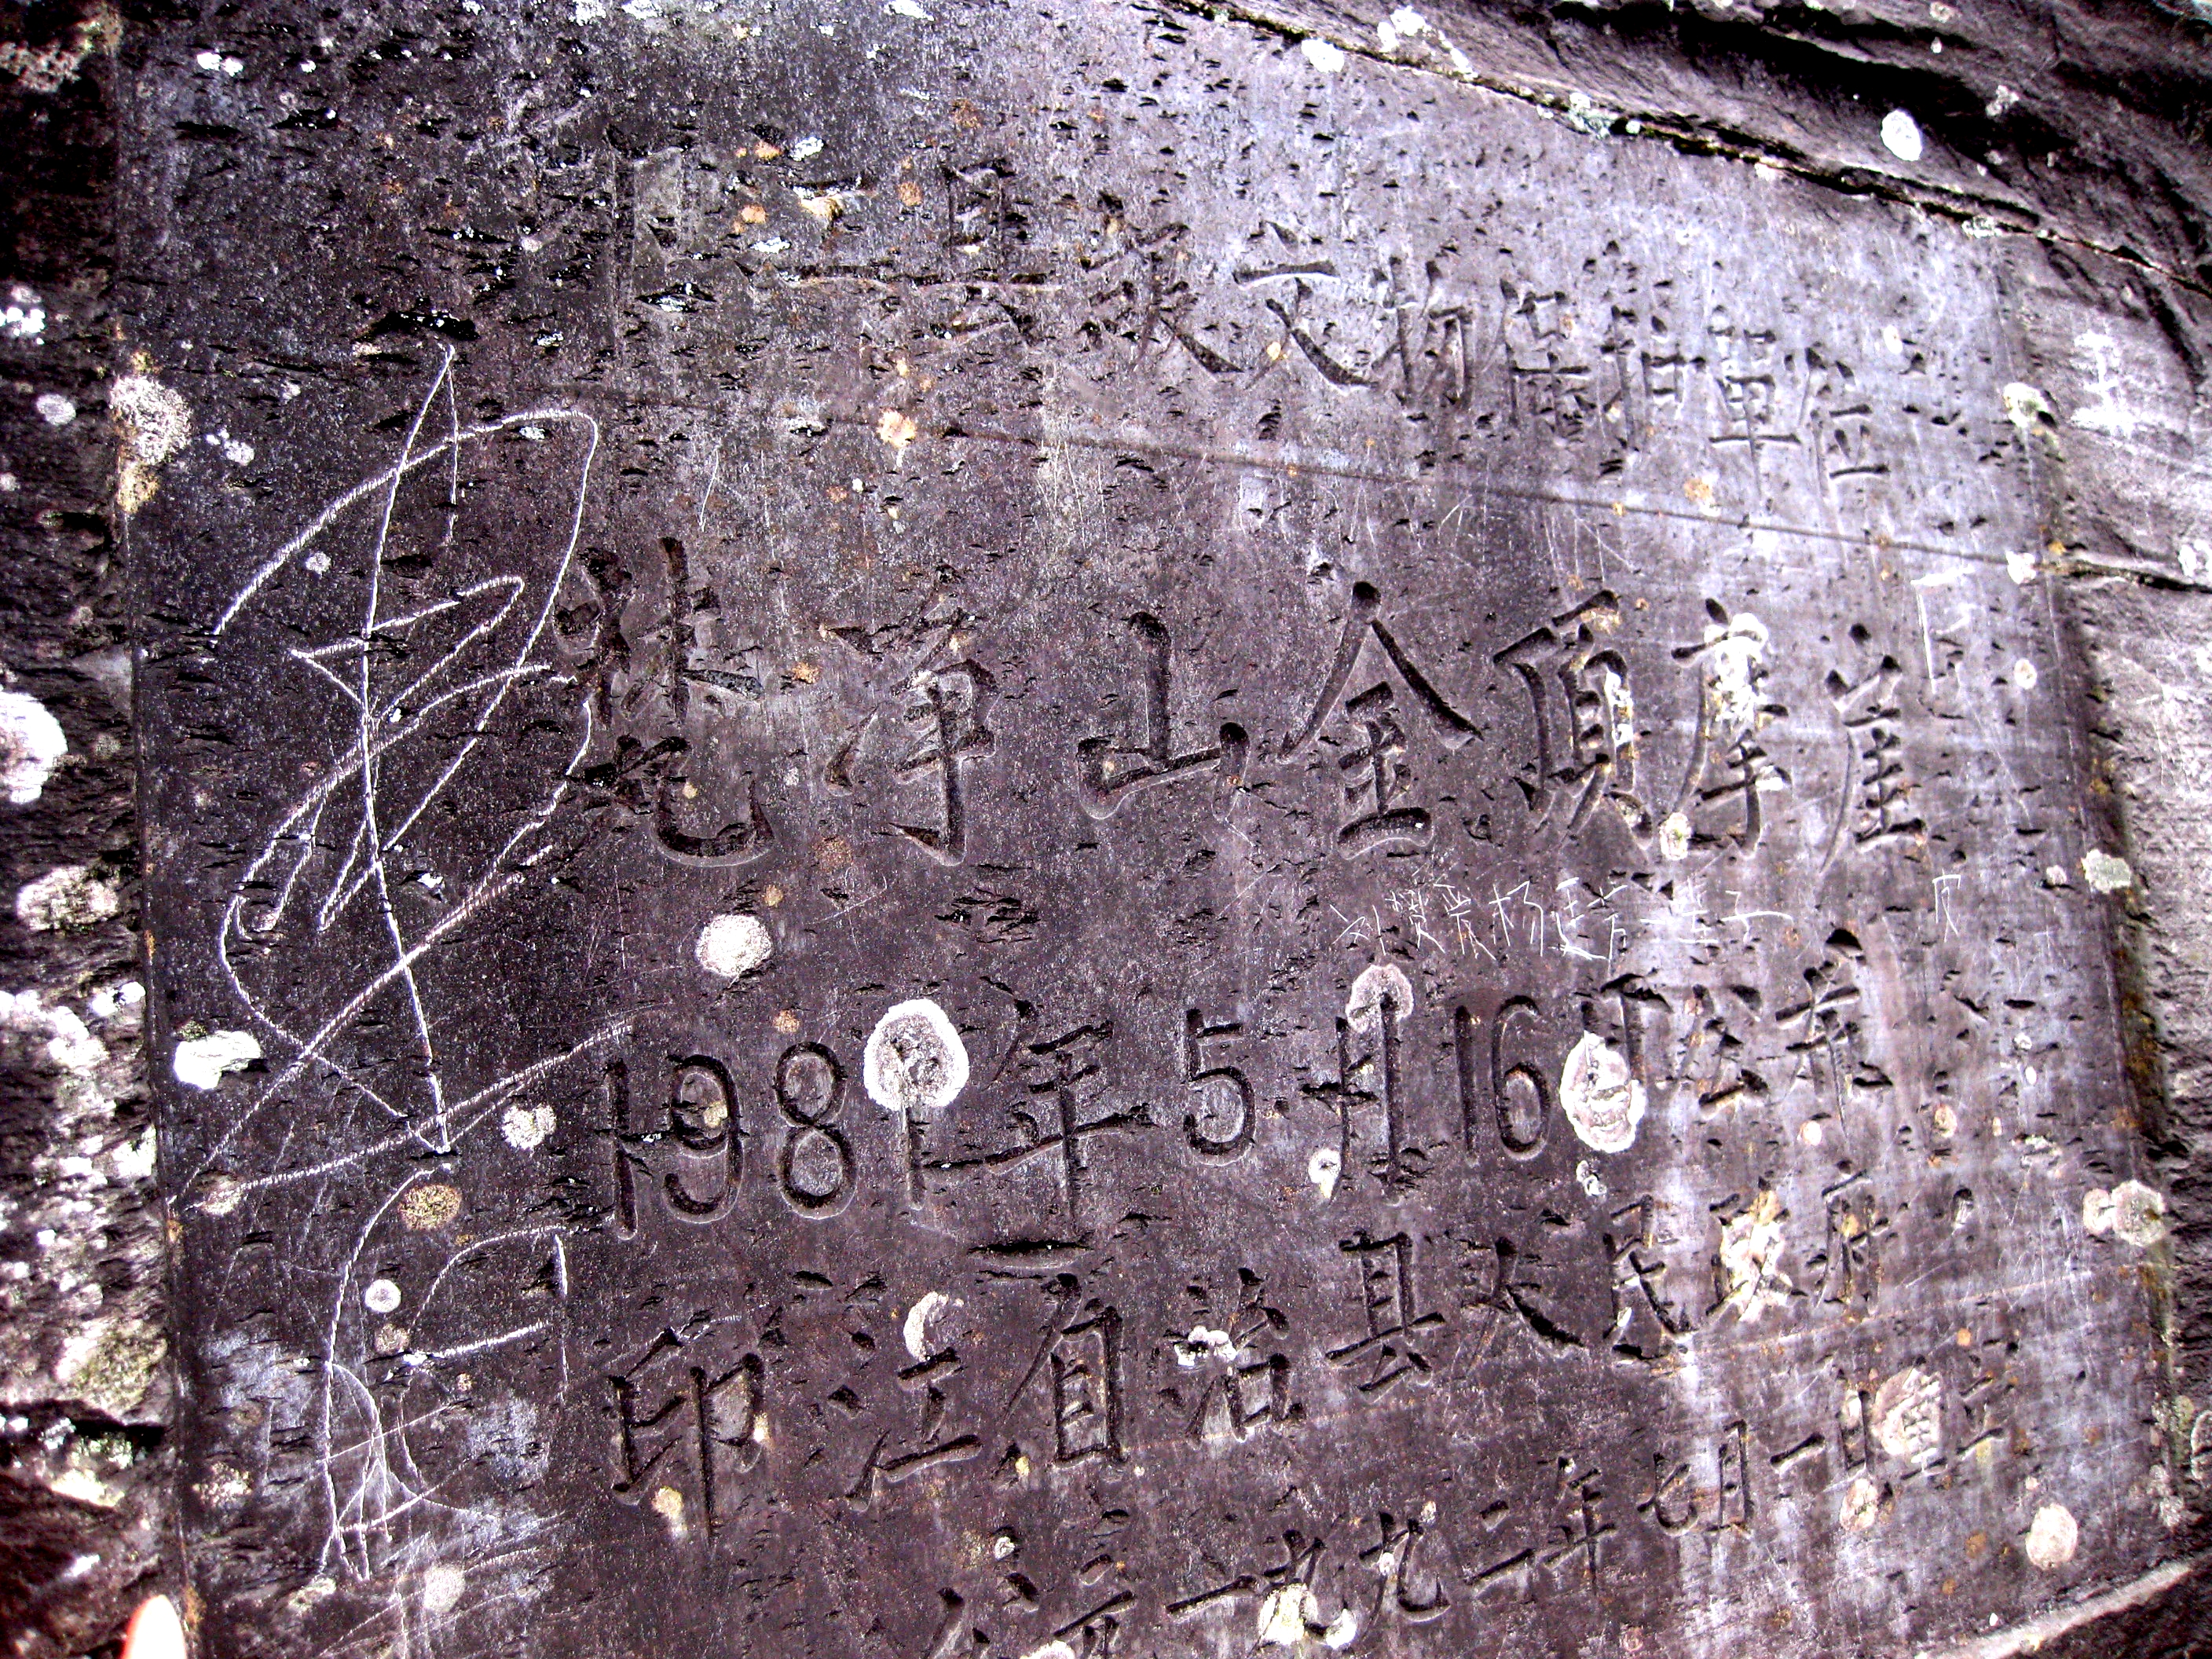 县级文物保护单位
梵净山金顶摩崖
1981年5月16日公布
印江自治县人民政府
公元一九九二年七月一日重立